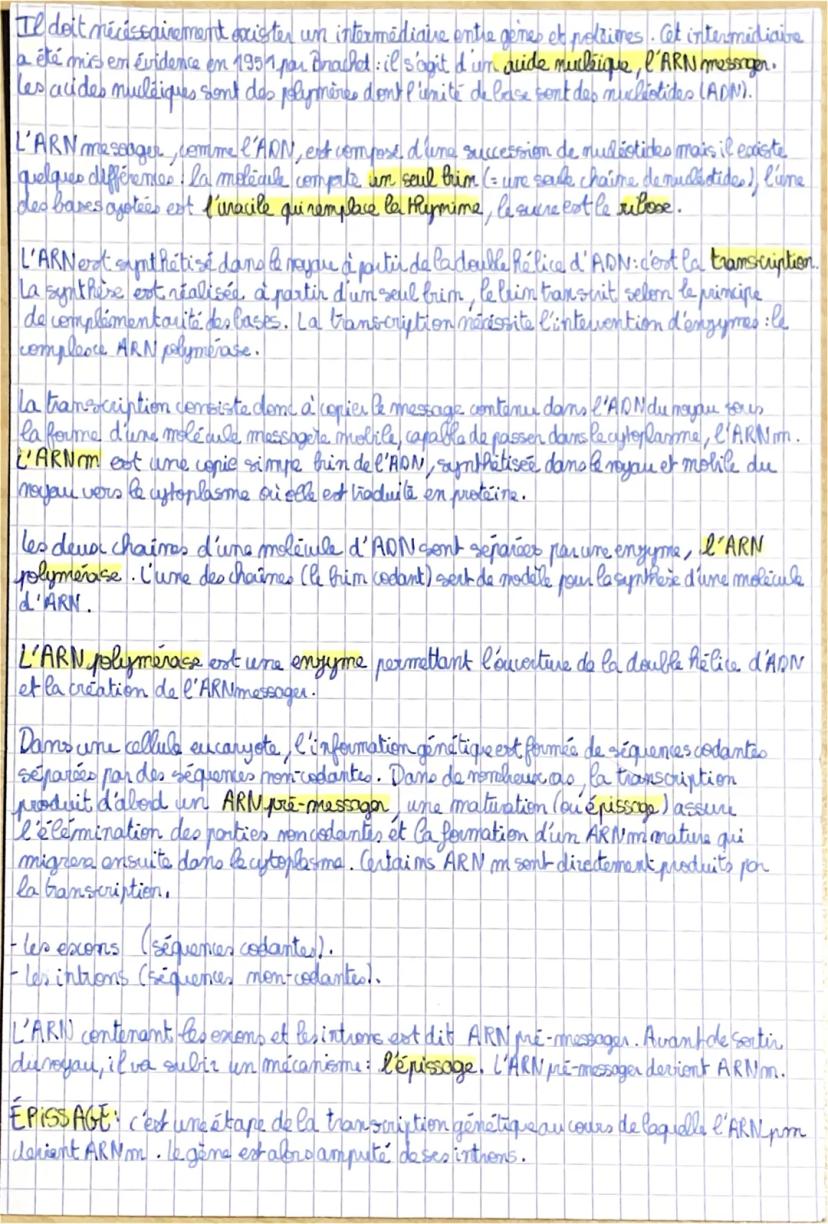 Il doit nécéssairement exister un intermédiaire entre gènes et protéines. Cet intermédiaire
a été mis en évidence en 1951 par Brachet : il s'agit d'un acide nucléique, l'ARN messager.
Les acides nucléiques sont des polymères dont l'unité de base sont des nucléotides (ADN).
L'ARN messager, comme l'ADN, est composé d'une succession de nucléotides mais il existe
quelques différences : la molécule comporte un seul brin (= une seule chaîne de nucléotides), l'une
des bases azotées est l'uracile qui remplace la thymine, le sucre est le ribose.
L'ARN est synthétisé dans le noyau à partir de la double hélice d'ADN : c'est la transcription.
La synthèse est réalisée à partir d'un seul brin, le brin transcrit selon le principe
de complémentarité des bases. La transcription nécéssite l'intervention d'enzymes : le
complexe ARN polymérase.
La transcription consiste donc à copier le message contenu dans l'ADN du noyau sous
la forme d'une molécule messagère mobile, capable de passer dans le cytoplasme, l'ARNm.
L'ARNm est une copie simpe brin de l'ADN, synthétisée dans le noyau et mobile du
noyau vers le cytoplasme où elle est traduite en protéine.
Les deux chaînes d'une molécule d'ADN sont séparées par une enzyme, l'ARN
polymérase. L'une des chaînes (le brin codant) sert de modèle pour la synthèse d'une molécule
d'ARN.
L'ARN polymérase est une enzyme permettant l'ouverture de la double hélice d'ADN
et la création de l'ARN messager.
Dans une cellule eucaryote, l'information génétique est formée de séquences codantes
séparées par des séquences non-codantes. Dans de nombreux cas, la transcription
produit d'abord un ARN pré-messager, une maturation (ou épissage) assure
l'élémination des parties non codantes et la formation d'un ARNm mature qui
migrera ensuite dans le cytoplasme. Certains ARN m sont directement produits par
la transcription.
- les exons (séquences codantes).
- les introns (séquences non-codantes).
L'ARN contenant les exons et les introns est dit ARN pré-messager. Avant de sortir
du noyau, il va subir un mécanisme : l'épissage. L'ARN pré-messager devient ARNm.
ÉPISSAGE : c'est une étape de la transcription génétique au cours de laquelle l'ARNpm
devient ARNm. Le gène est alors amputé de ses introns.